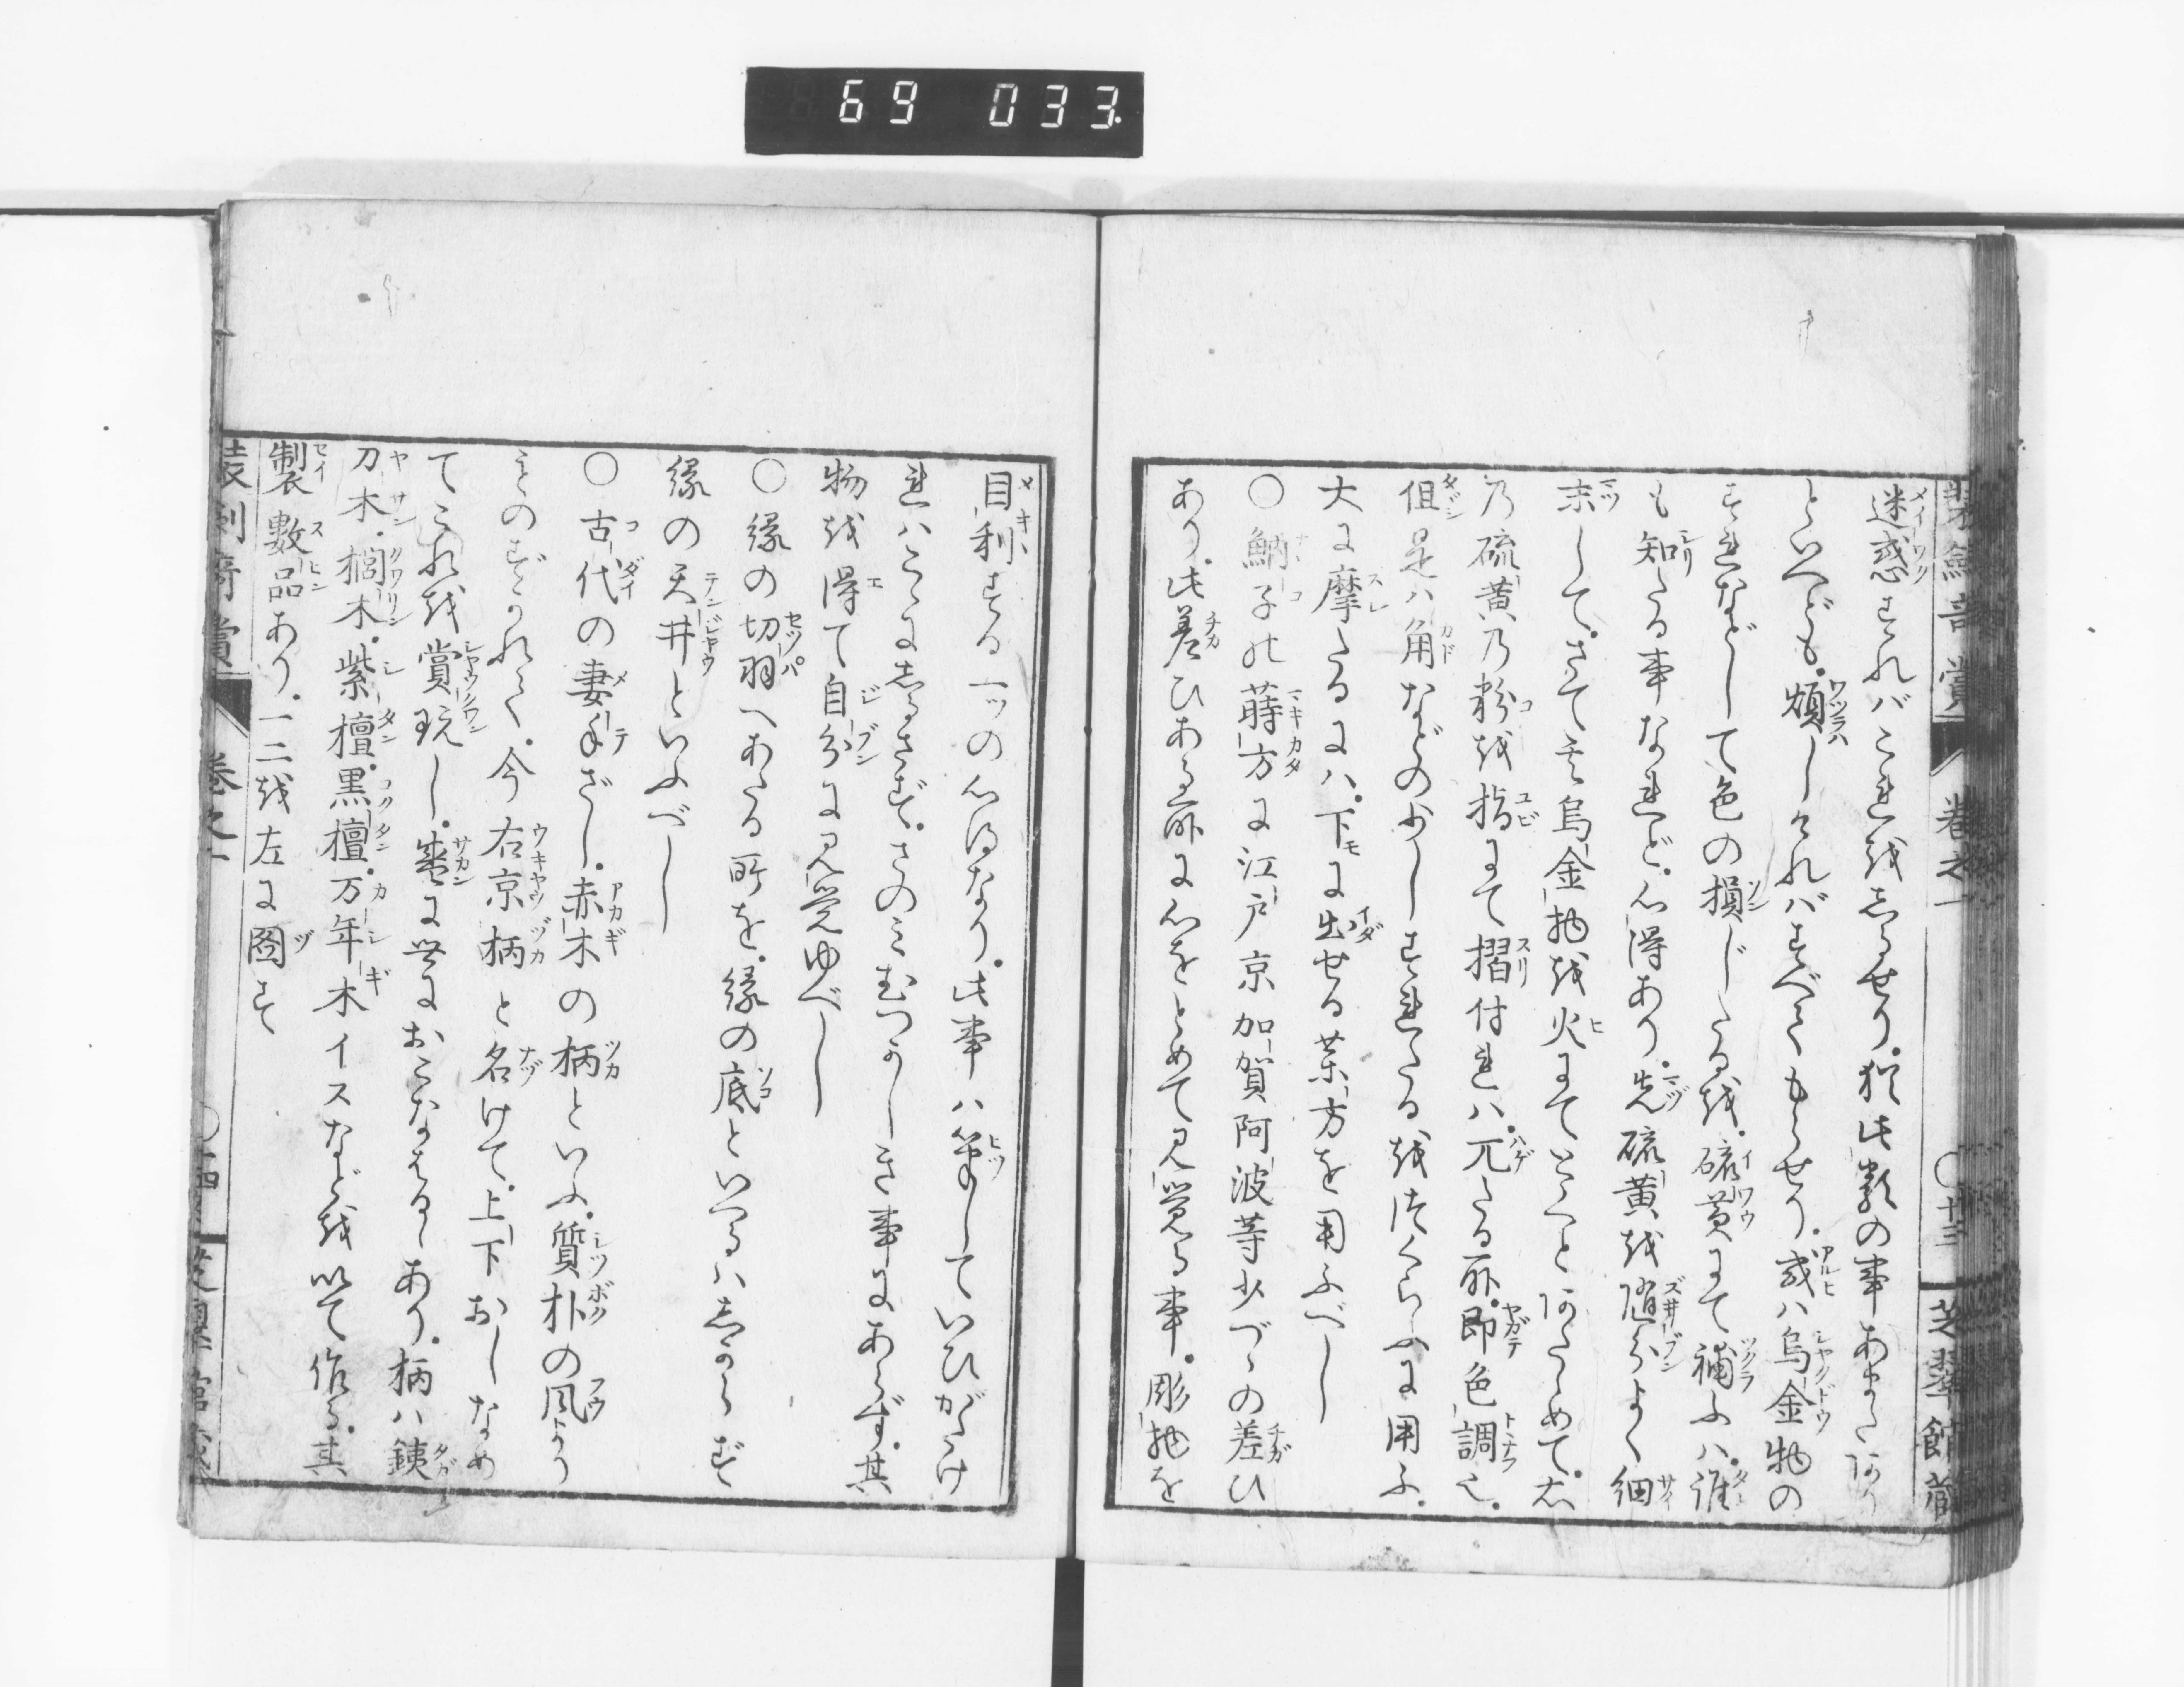 69 033.
装劔奇賞 巻之一 ○十三 芝翠館蔵
迷惑すれバこれをしるせり。猶此数の事あまたあり
といへども。煩しけれバすべてもらせり。或ハ烏金物の
すれなどして色の損じたるを。硫黄にて補ふハ。誰
も知たる事なれど。心得あり。先硫黄を随分よく細
末してさて其烏金物を火にてとくとあたゝめて。右
乃硫黄乃粉を指にて摺付れハ。兀たる所。即色調也。
但是ハ角などの少しすれたるをつくらふに用ふ。
大に摩たるにハ。下に出せる薬方を用ふべし
○ 魶子の蒔方に江戸京加賀阿波等少づゝの差ひ
あり。此差ひある所に心をとめて見覚る事。彫物を
目利する一ッの心得なり。此事ハ筆していひがたけ
れハこゝにしるさず。さのミむつかしき事にあらず。其
物を得て自分に見覚ゆべし
○ 縁の切羽へあたる所を。縁の底といへるハしからず
縁の天井といふべし
○ 古代の妻手ざし。赤木の柄といふ。質朴の風より
そのまゝ。今右京柄と名けて。上下おしなめ
てこれを賞翫し。盛に世におこなはるゝあり。柄ハ銕
刀木。櫚木。紫檀。黒檀。万年木イスなどを以て作る。其
製数品あり。一二を左に図す
装剣奇賞 巻之一 ○十四